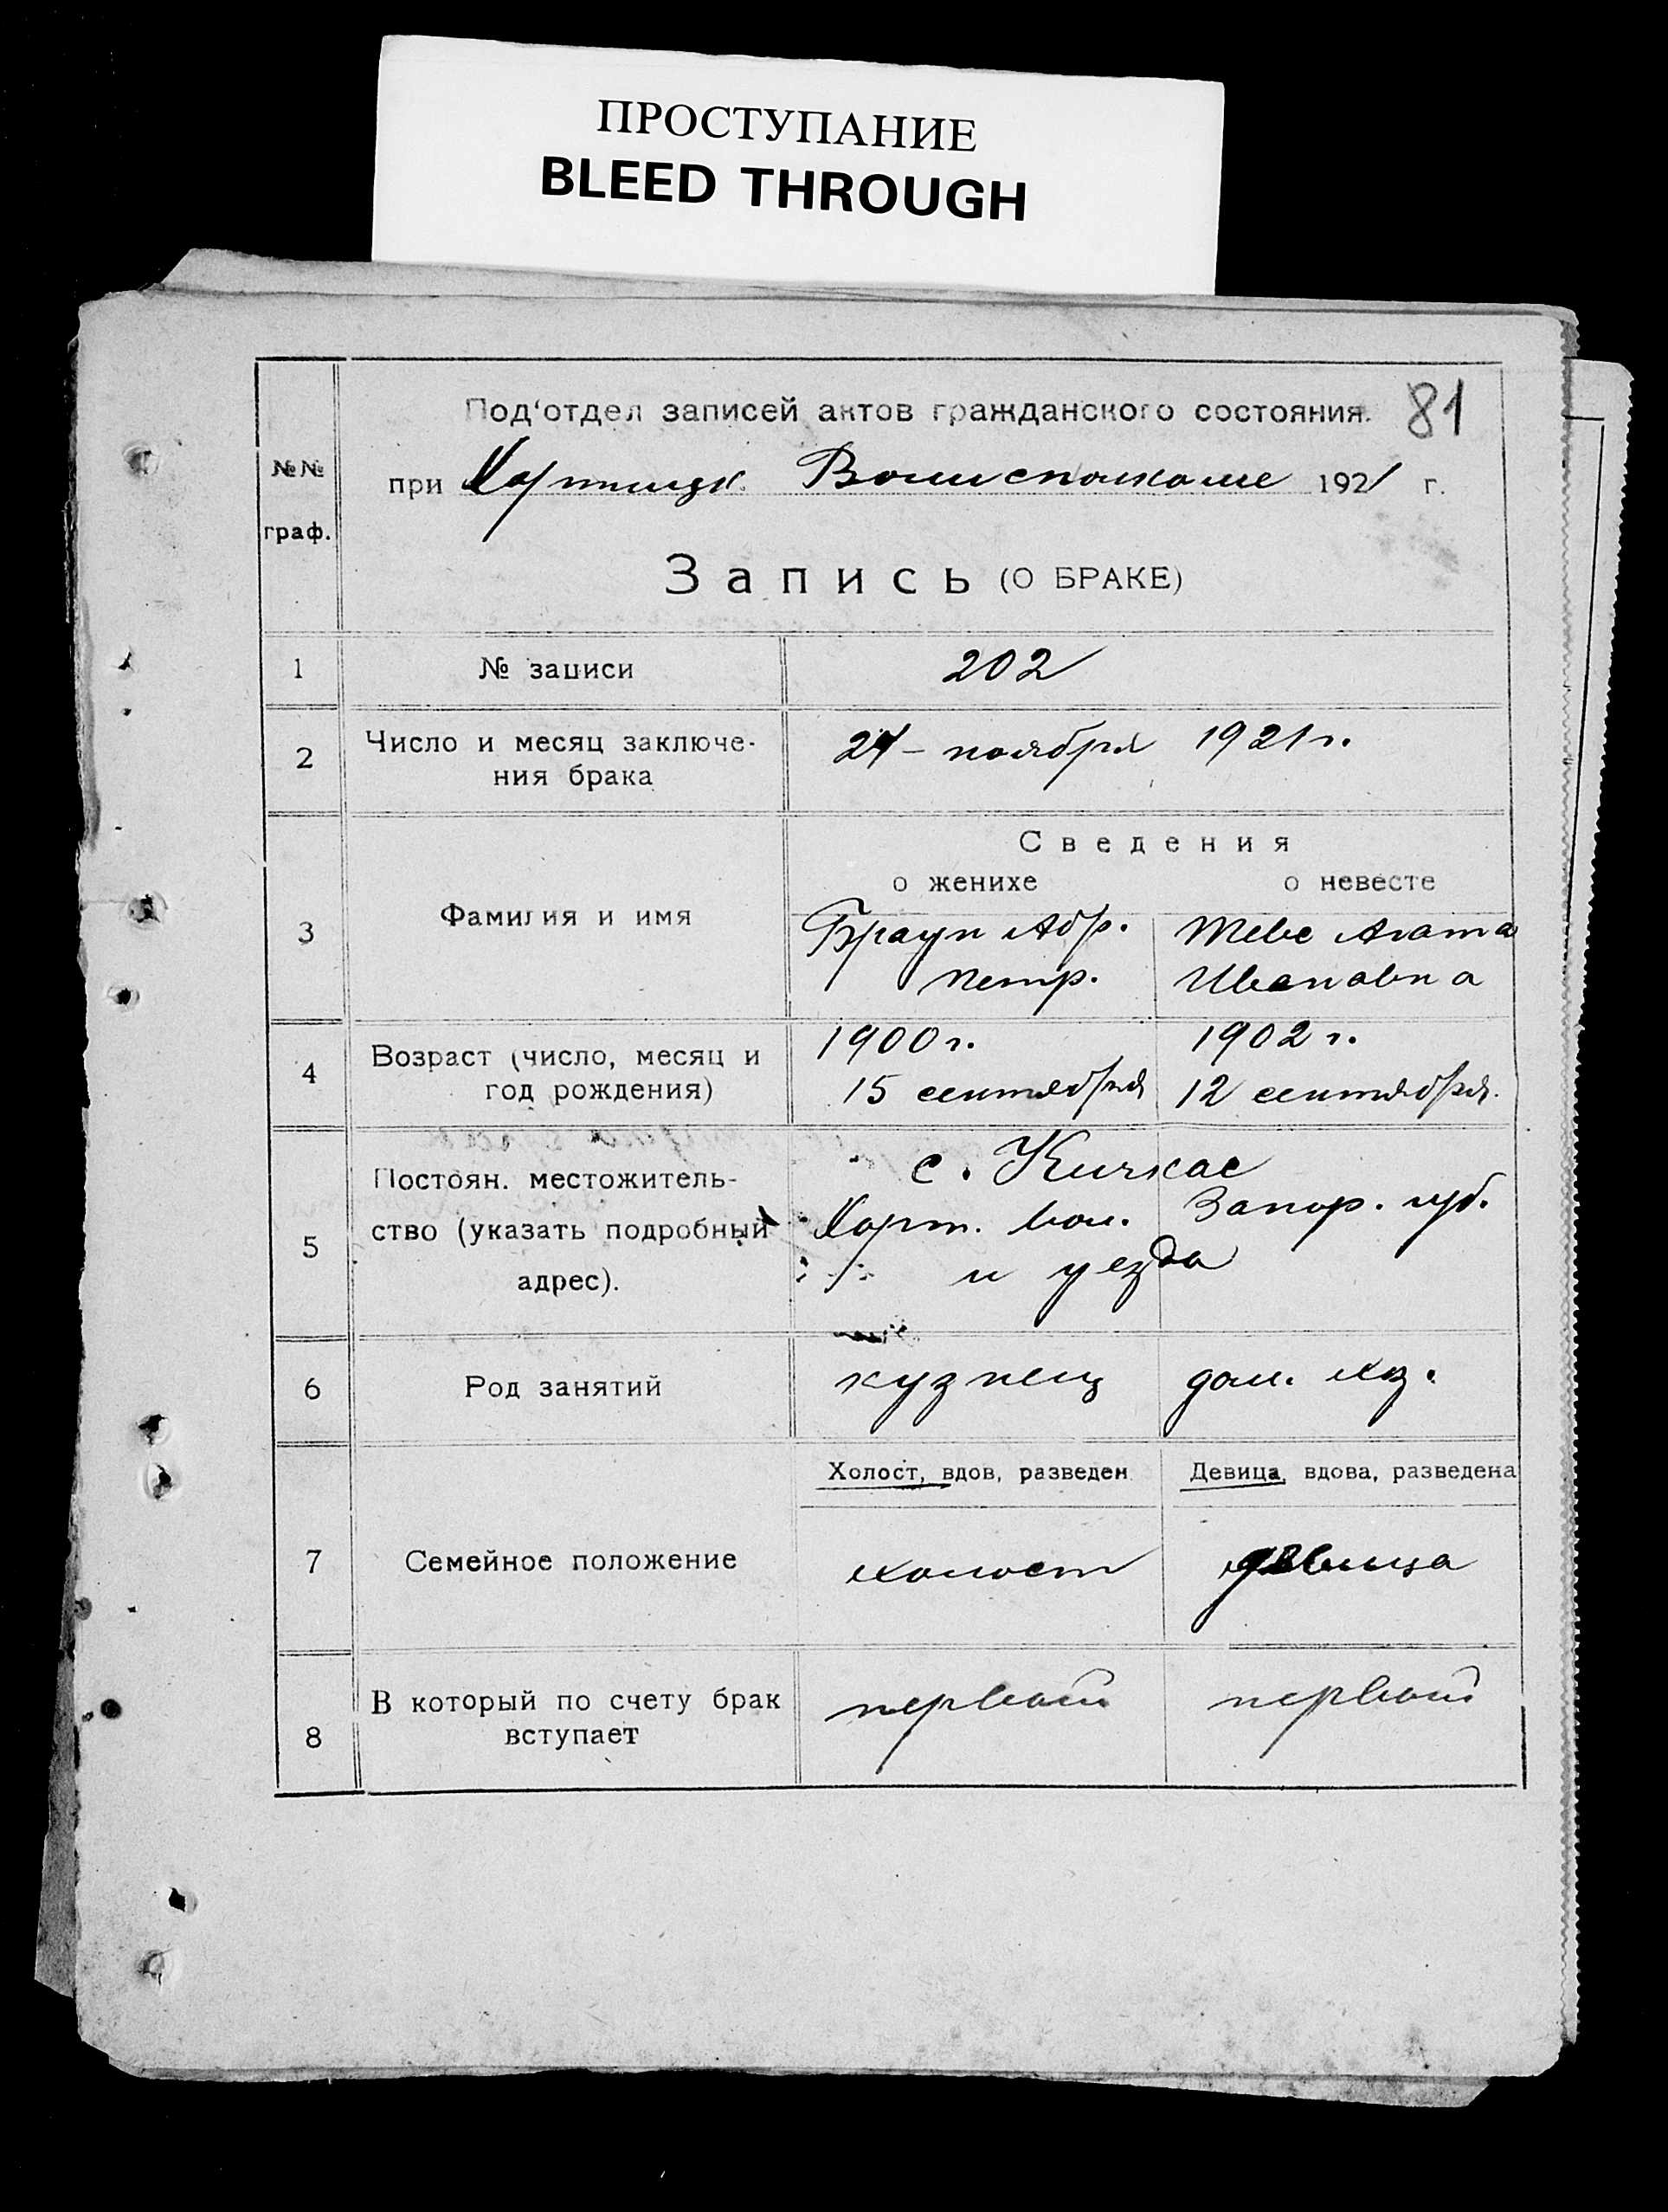 ПРОСТУПАНИЕ
BLEED THROUGH
Под'отдел записей актов гражданского состояния. 81
№№
граф.
при Хортицк. Волисполкоме 1921 г.
Запись (О БРАКЕ)
1 № записи 202
2 Число и месяц заключе-
ния брака
ноября 1921 г.
Сведения
о женихе о невесте
3 Фамилия и имя
Браун Абр. Теве Агата
Петр. Ивановна
4 Возраст (число, месяц и
год рождения)
1900 г. 1902 г.
15 сентября 12 сентября.
5 Постоян. местожитель-
ство (указать подробный
адрес).
с. Кичкас
Хорт. вол. Запор. губ.
и уезда
6 Род занятий кузнец дом. хоз.
Холост, вдов, разведен Девица, вдова, разведена
7 Семейное положение холост девица
8 В который по счету брак
вступает
первый первый